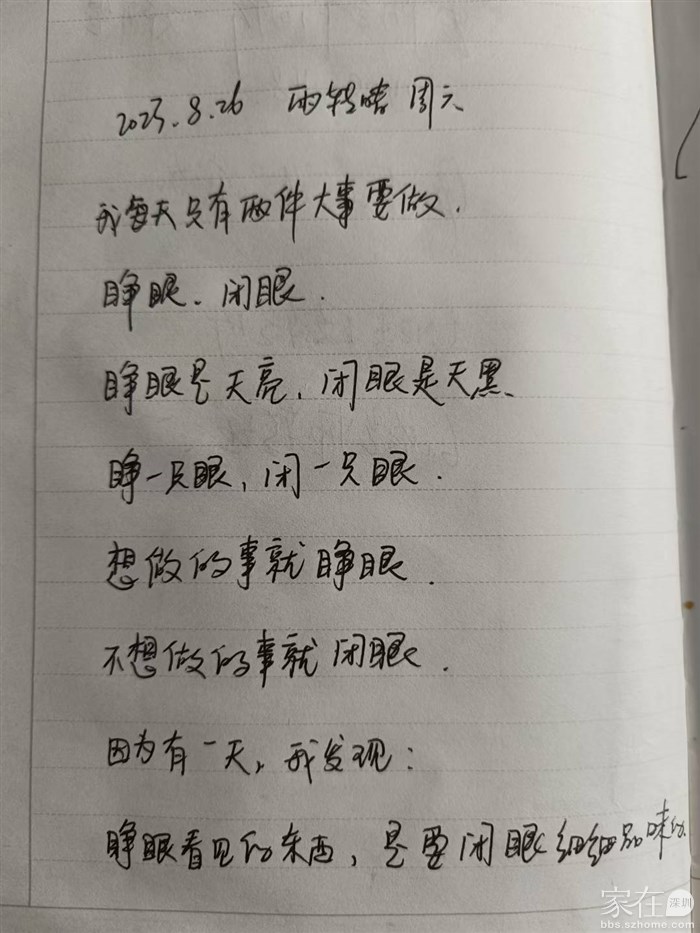 2023.8.26 雨转晴 周六
我每天只有两件大事要做.
睁眼、闭眼.
睁眼是天亮,闭眼是天黑、
睁一只眼,闭一只眼.
想做的事就睁眼.
不想做的事就闭眼.
因为有一天,我发现:
睁眼看见的东西,是要闭眼细细品味的.
家在深圳
bbs.szhome.com